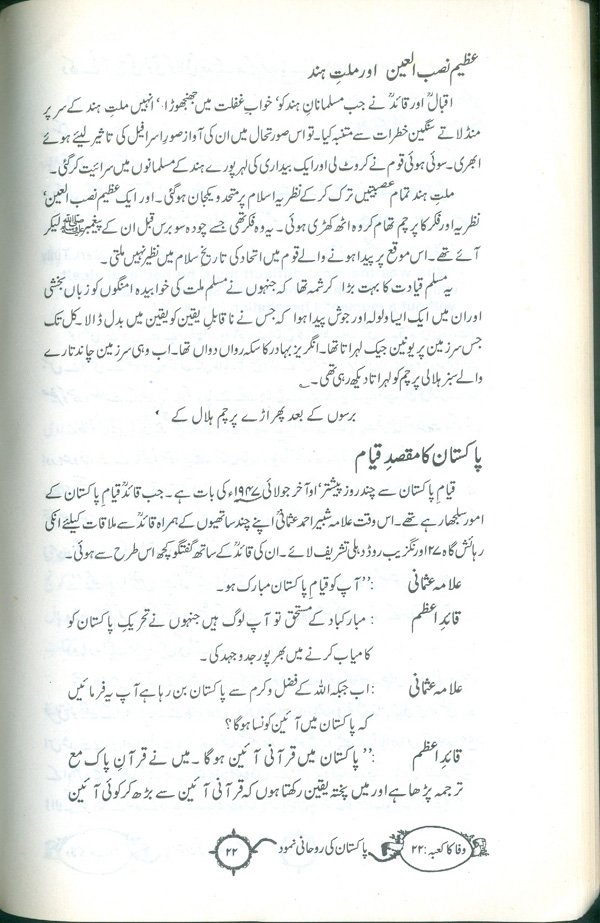 عظیم نصب العین اور ملتِ ہند
اقبالؒ اور قائدؒ نے جب مسلمانانِ ہند کو‘ خوابِ غفلت میں جھنجھوڑا‘ انہیں ملتِ ہند کے سر پر
منڈلاتے سنگین خطرات سے متنبہ کیا۔ تو اس صورتحال میں ان کی آواز صورِ اسرافیل کی تاثیر لیئے ہوئے
ابھری۔ سوئی ہوئی قوم نے کروٹ لی اور ایک بیداری کی لہر پورے ہند کے مسلمانوں میں سرائیت کر گئی۔
ملتِ ہند تمام عصبیتیں ترک کر کے نظریہ اسلام پر متحد و یکجان ہو گئی۔ اور ایک عظیم نصب العین‘
نظریہ اور فکر کا پرچم تھام کر وہ اٹھ کھڑی ہوئی۔ یہ وہ فکر تھی جسے چودہ سو برس قبل ان کے پیغمبر ﷺ لیکر
آئے تھے۔ اس موقع پر پیدا ہونے والے قوم میں اتحاد کی تاریخ سلام میں نظیر نہیں ملتی۔
یہ مسلم قیادت کا بہت بڑا کرشمہ تھا کہ جنہوں نے مسلم ملت کی خوابیدہ امنگوں کو زباں بخشی
اور ان میں ایک ایسا ولولہ اور جوش پیدا ہوا کہ جس نے ناقابلِ یقین کو یقین میں بدل ڈالا۔ کل تک
جس سرزمین پر یونین جیک لہراتا تھا۔ انگریز بہادر کا سکہ رواں دواں تھا۔ اب وہی سرزمین چاند تارے
والے سبز ہلالی پرچم کو لہراتا دیکھ رہی تھی۔ ؎
برسوں کے بعد پھر اڑے پرچم ہلال کے ‘
پاکستان کا مقصدِ قیام
قیامِ پاکستان سے چند روز پیشتر‘ اواخر جولائی ۱۹۴۷ء کی بات ہے۔ جب قائدؒ قیامِ پاکستان کے
امور سلجھا رہے تھے۔ اس وقت علامہ شبیر احمد عثمانیؒ اپنے چند ساتھیوں کے ہمراہ قائدؒ سے ملاقات کیلئے انکی
رہائش گاہ ۲۷ اورنگزیب روڈ دہلی تشریف لائے۔ ان کی قائدؒ کے ساتھ گفتگو کچھ اس طرح سے ہوئی۔
علامہ عثمانی :’’ آپ کو قیامِ پاکستان مبارک ہو۔
قائدِ اعظم : مبارکباد کے مستحق تو آپ لوگ ہیں جنہوں نے تحریکِ پاکستان کو
کامیاب کرنے میں بھرپور جدوجہد کی۔
علامہ عثمانی : اب جبکہ اللہ کے فضل و کرم سے پاکستان بن رہا ہے آپ یہ فرمائیں
کہ پاکستان میں آئین کونسا ہوگا؟
قائدِ اعظم :’’ پاکستان میں قرآنی آئین ہوگا۔ میں نے قرآنِ پاک مع
ترجمہ پڑھا ہے اور میں پختہ یقین رکھتا ہوں کہ قرآنی آئین سے بڑھ کر کوئی آئین
وفا کا کعبہ: ۲۲ پاکستان کی روحانی نمود ۲۲